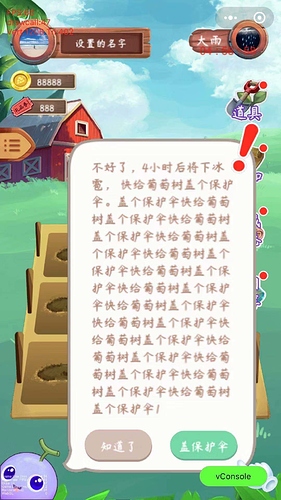 设置的名字
大雨
88888
道具
不好了，4小时后将下冰
雹，快给葡萄树盖个保护
伞。盖个保护伞快给葡萄
树盖个保护伞快给葡萄树
盖个保护伞快给葡萄树盖
个保护伞快给葡萄树盖个
保护伞快给葡萄树盖个保
护伞快给葡萄树盖个保护
伞快给葡萄树盖个保护伞
快给葡萄树盖个保护伞快
给葡萄树盖个保护伞快给
葡萄树盖个保护伞快给葡
萄树盖个保护伞快给葡萄
树盖个保护伞快给葡萄树
盖个保护伞！
知道了
盖保护伞
vConsole